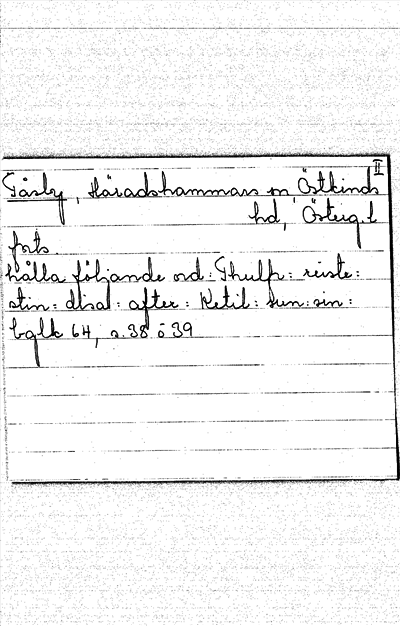 II
Tåsby, Häradshammars sn Östkinds
hd, Östergl
forts.
hålla följande ord: Thulf: reiste:
stin: dtsa: after: Ketil: sun: sin:
bglb 64, s. 38 o 39